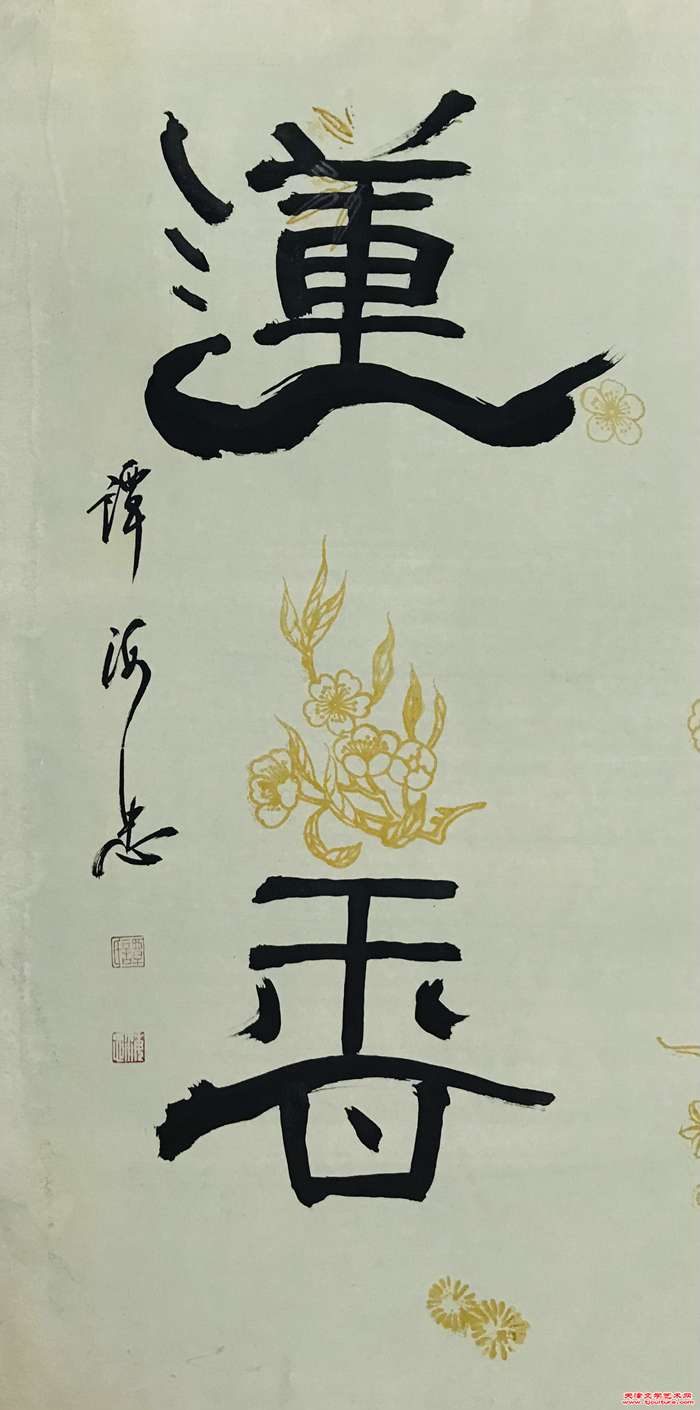 蓮香
譚海忠
天津文学艺术网
www.tjculture.com